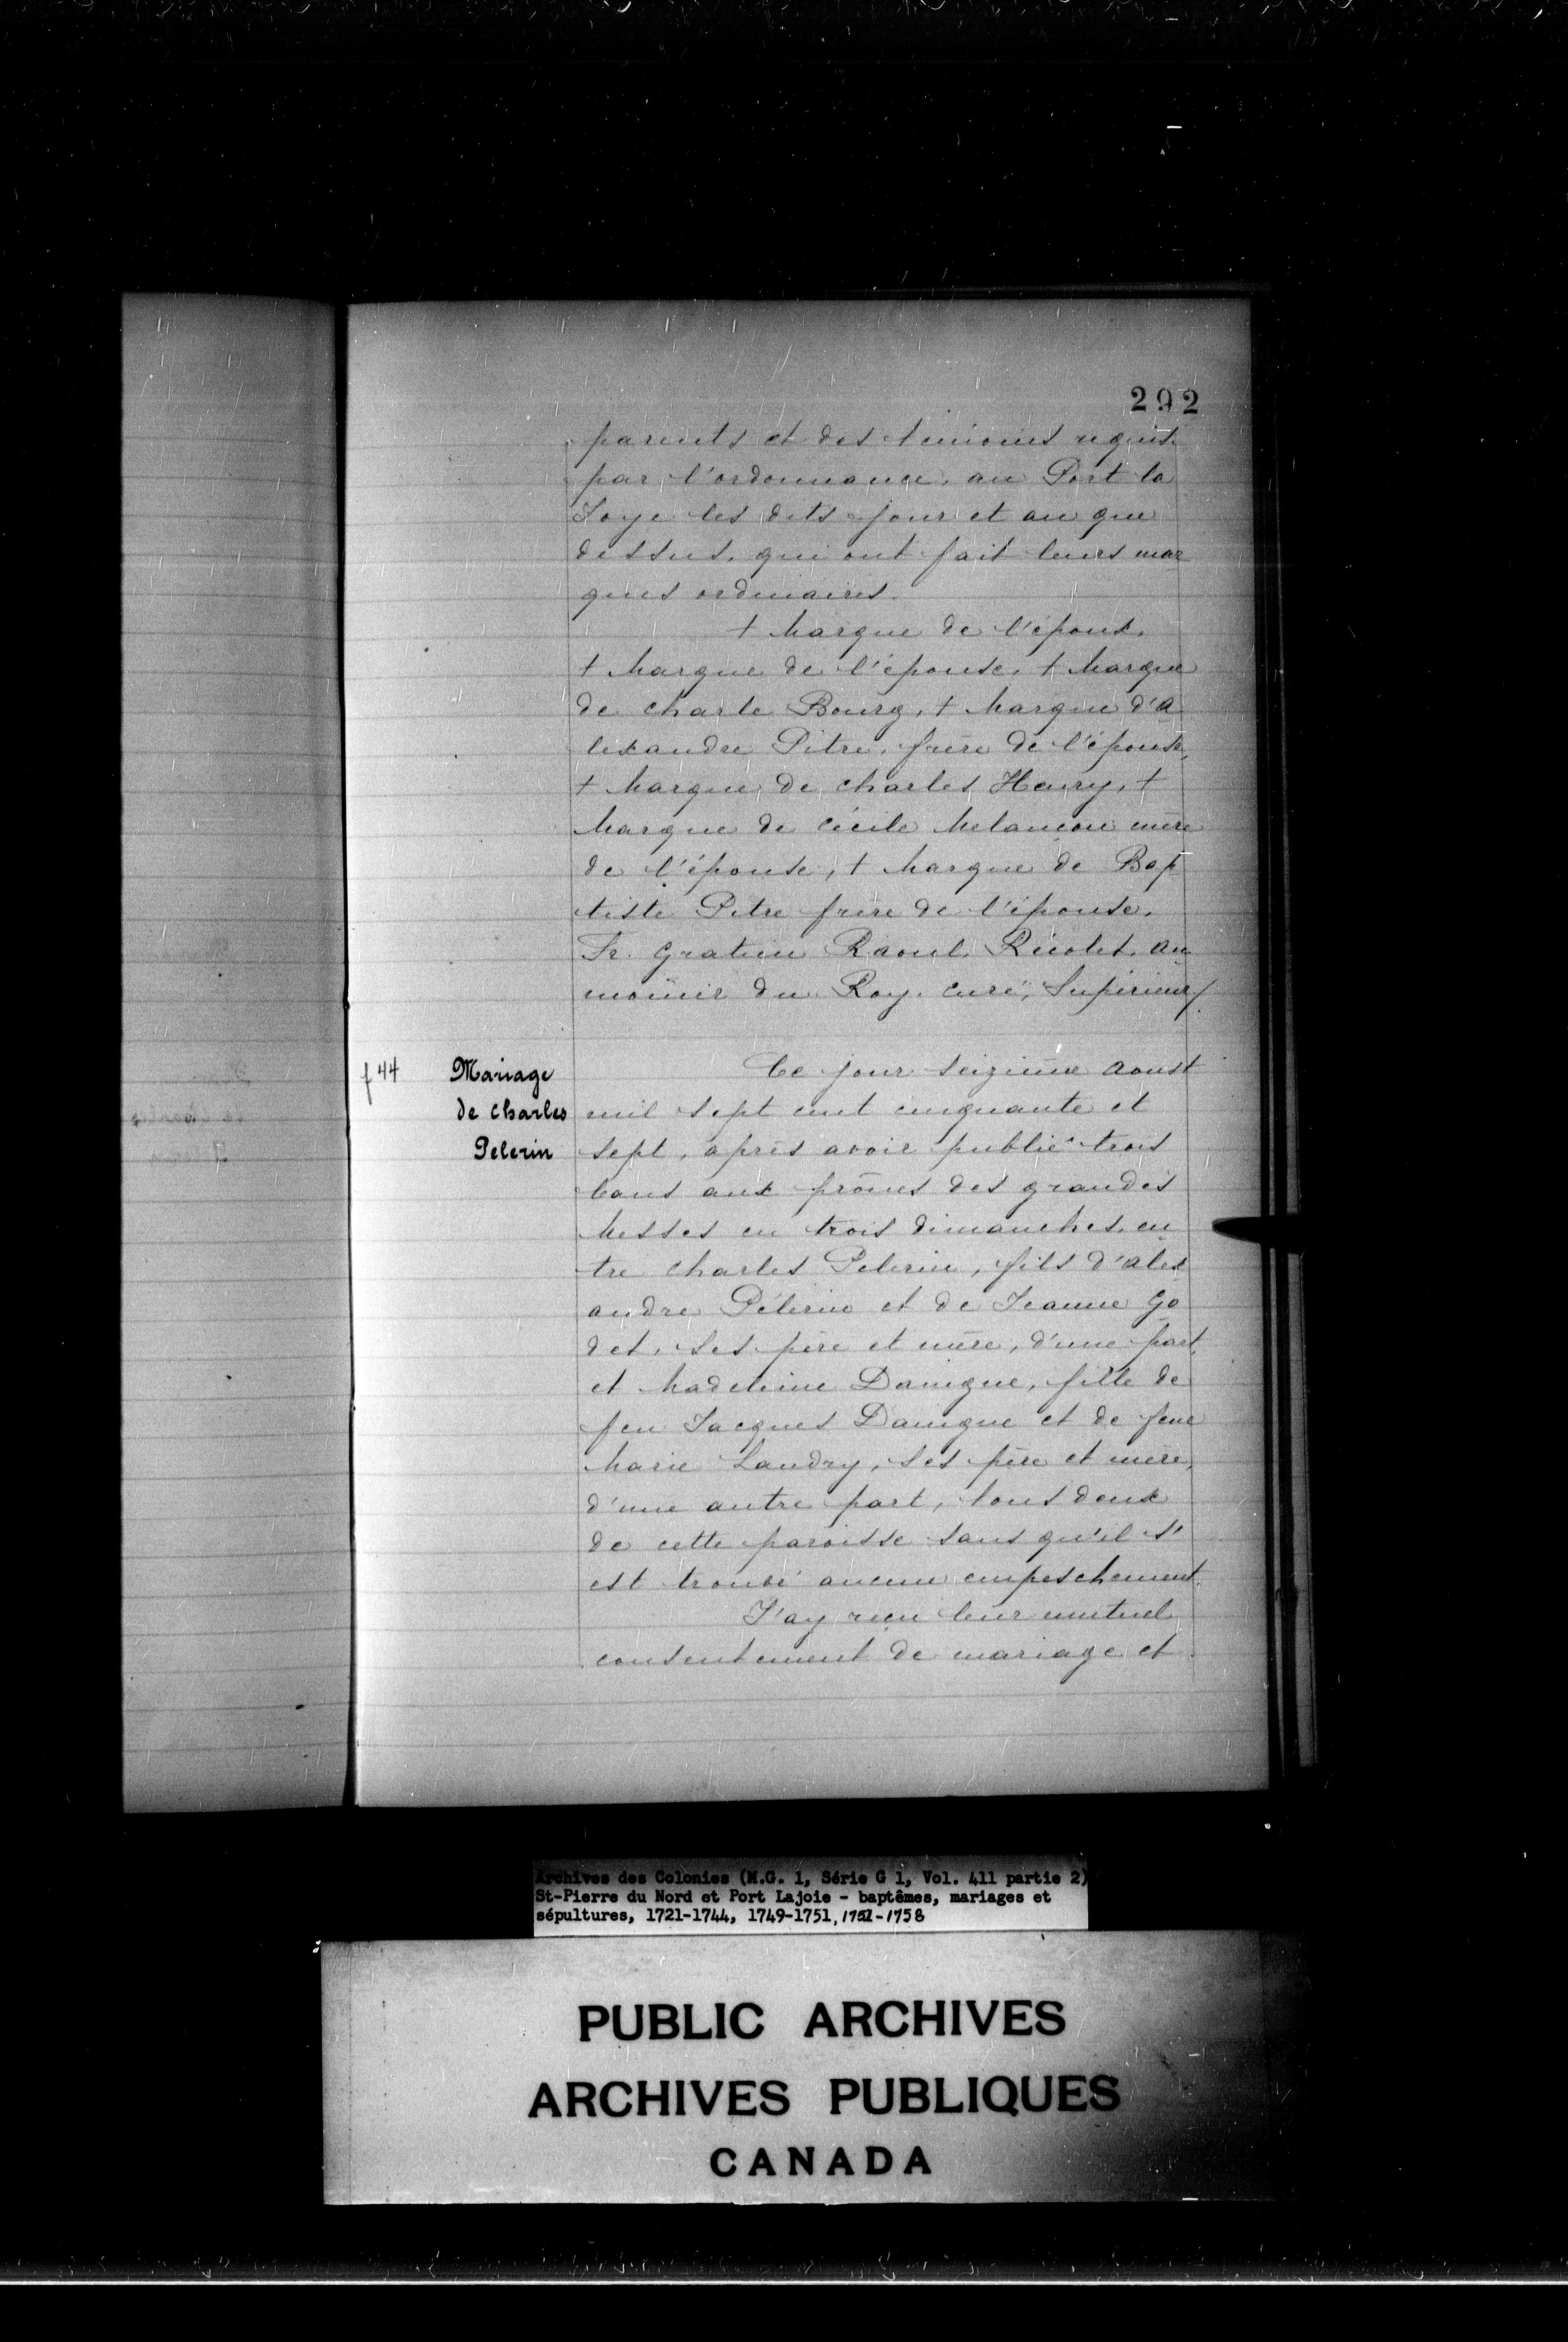 292
parents et des temoins requis
par l'ordonnance, au Port la
Joye les dits jour et an que
dessus, qui ont fait leurs mar
ques ordinaires.
+ Marque de l'époux,
+ Marque de l'épouse, + Marque
de charle Bourg, + Marque d'A
lexandre Pitre, frère de l'épouse,
+ Marque de charles Henry, +
Marque de cécile Melançon mère
de l'épouse, + Marque de Bap
tiste Pitre frère de l'épouse,
Fr. Gratien Raoul, Récolet, au
mônier du Roy, curé, Supérieur/.
f 44
Mariage
de charles
Pelerin
Ce jour seizième Aoust
mil sept cent cinquante et
sept, après avoir publié trois
bans aux prônes des grandes
Messes en trois dimanches, en
tre charles Pelerin, fils d'alex
andre Pélerin et de Jeanne Go
det, ses père et mère, d'une part,
et Madeleine Daingue, fille de
feu Jacques Daingue et de feue
Marie Landry, ses père et mère,
d'une autre part, tous deux
de cette paroisse sans qu'il s'
est trouvé aucun empeschement.
J'ay reçu leur mutuel
consentement de mariage et
Archives des Colonies (M.G. 1, Série G 1, Vol. 411 partie 2)
St-Pierre du Nord et Port Lajoie - baptêmes, mariages et
sépultures, 1721-1744, 1749-1751, 1752-1758
PUBLIC ARCHIVES
ARCHIVES PUBLIQUES
CANADA